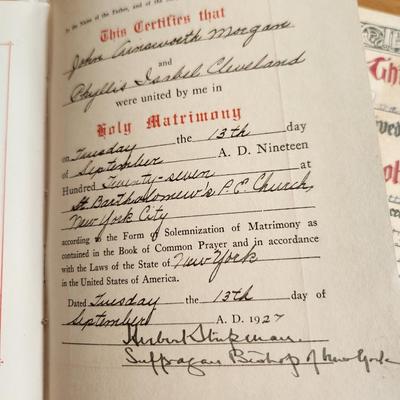 In the Name of the Father, and of the
This Certifies that
John Ainsworth Morgan
and
Phyllis Isabel Cleveland
were united by me in
Holy Matrimony
on Tuesday the 13th day
of September A. D. Nineteen
Hundred Twenty-seven at
St. Bartholomew's P. E. Church,
New York City
according to the Form of Solemnization of Matrimony as
contained in the Book of Common Prayer and in accordance
with the Laws of the State of New York
in the United States of America.
Dated Tuesday the 13th day of
September A. D. 1927
Herbert Shipman
Suffragan Bishop of New York